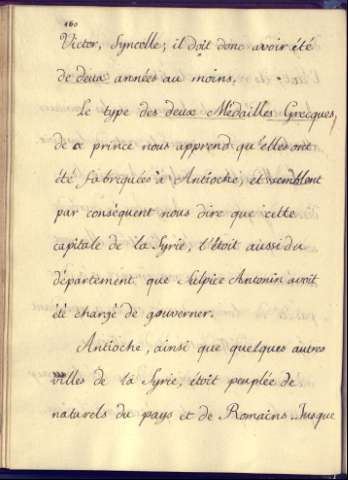 160
Victor, Syncelle; il doit donc avoir été
de deux années au moins.
Le type des deux Médailles Grecques,
de ce prince nous apprend qu'elles ont
été fabriquées à Antioche, et semblent
par conséquent nous dire que cette
capitale de la Syrie, l'étoit aussi du
département que Sulpice Antonin avoit
été chargé de gouverner.
Antioche, ainsi que quelques autres
villes de la Syrie, étoit peuplée de
naturels du pays et de Romains. Jusque